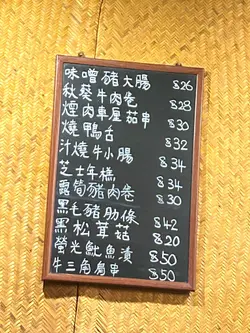 味噌豬大腸 $26
秋葵牛肉卷 $28
煙肉車厘茄串 $30
燒鴨舌 $32
汁燒牛小腸 $34
芝士年糕 $34
露筍豬肉卷 $30
黑毛豬肋條 $42
黑松茸菇 $20
螢光魷魚漬 $50
牛三角肩串 $50